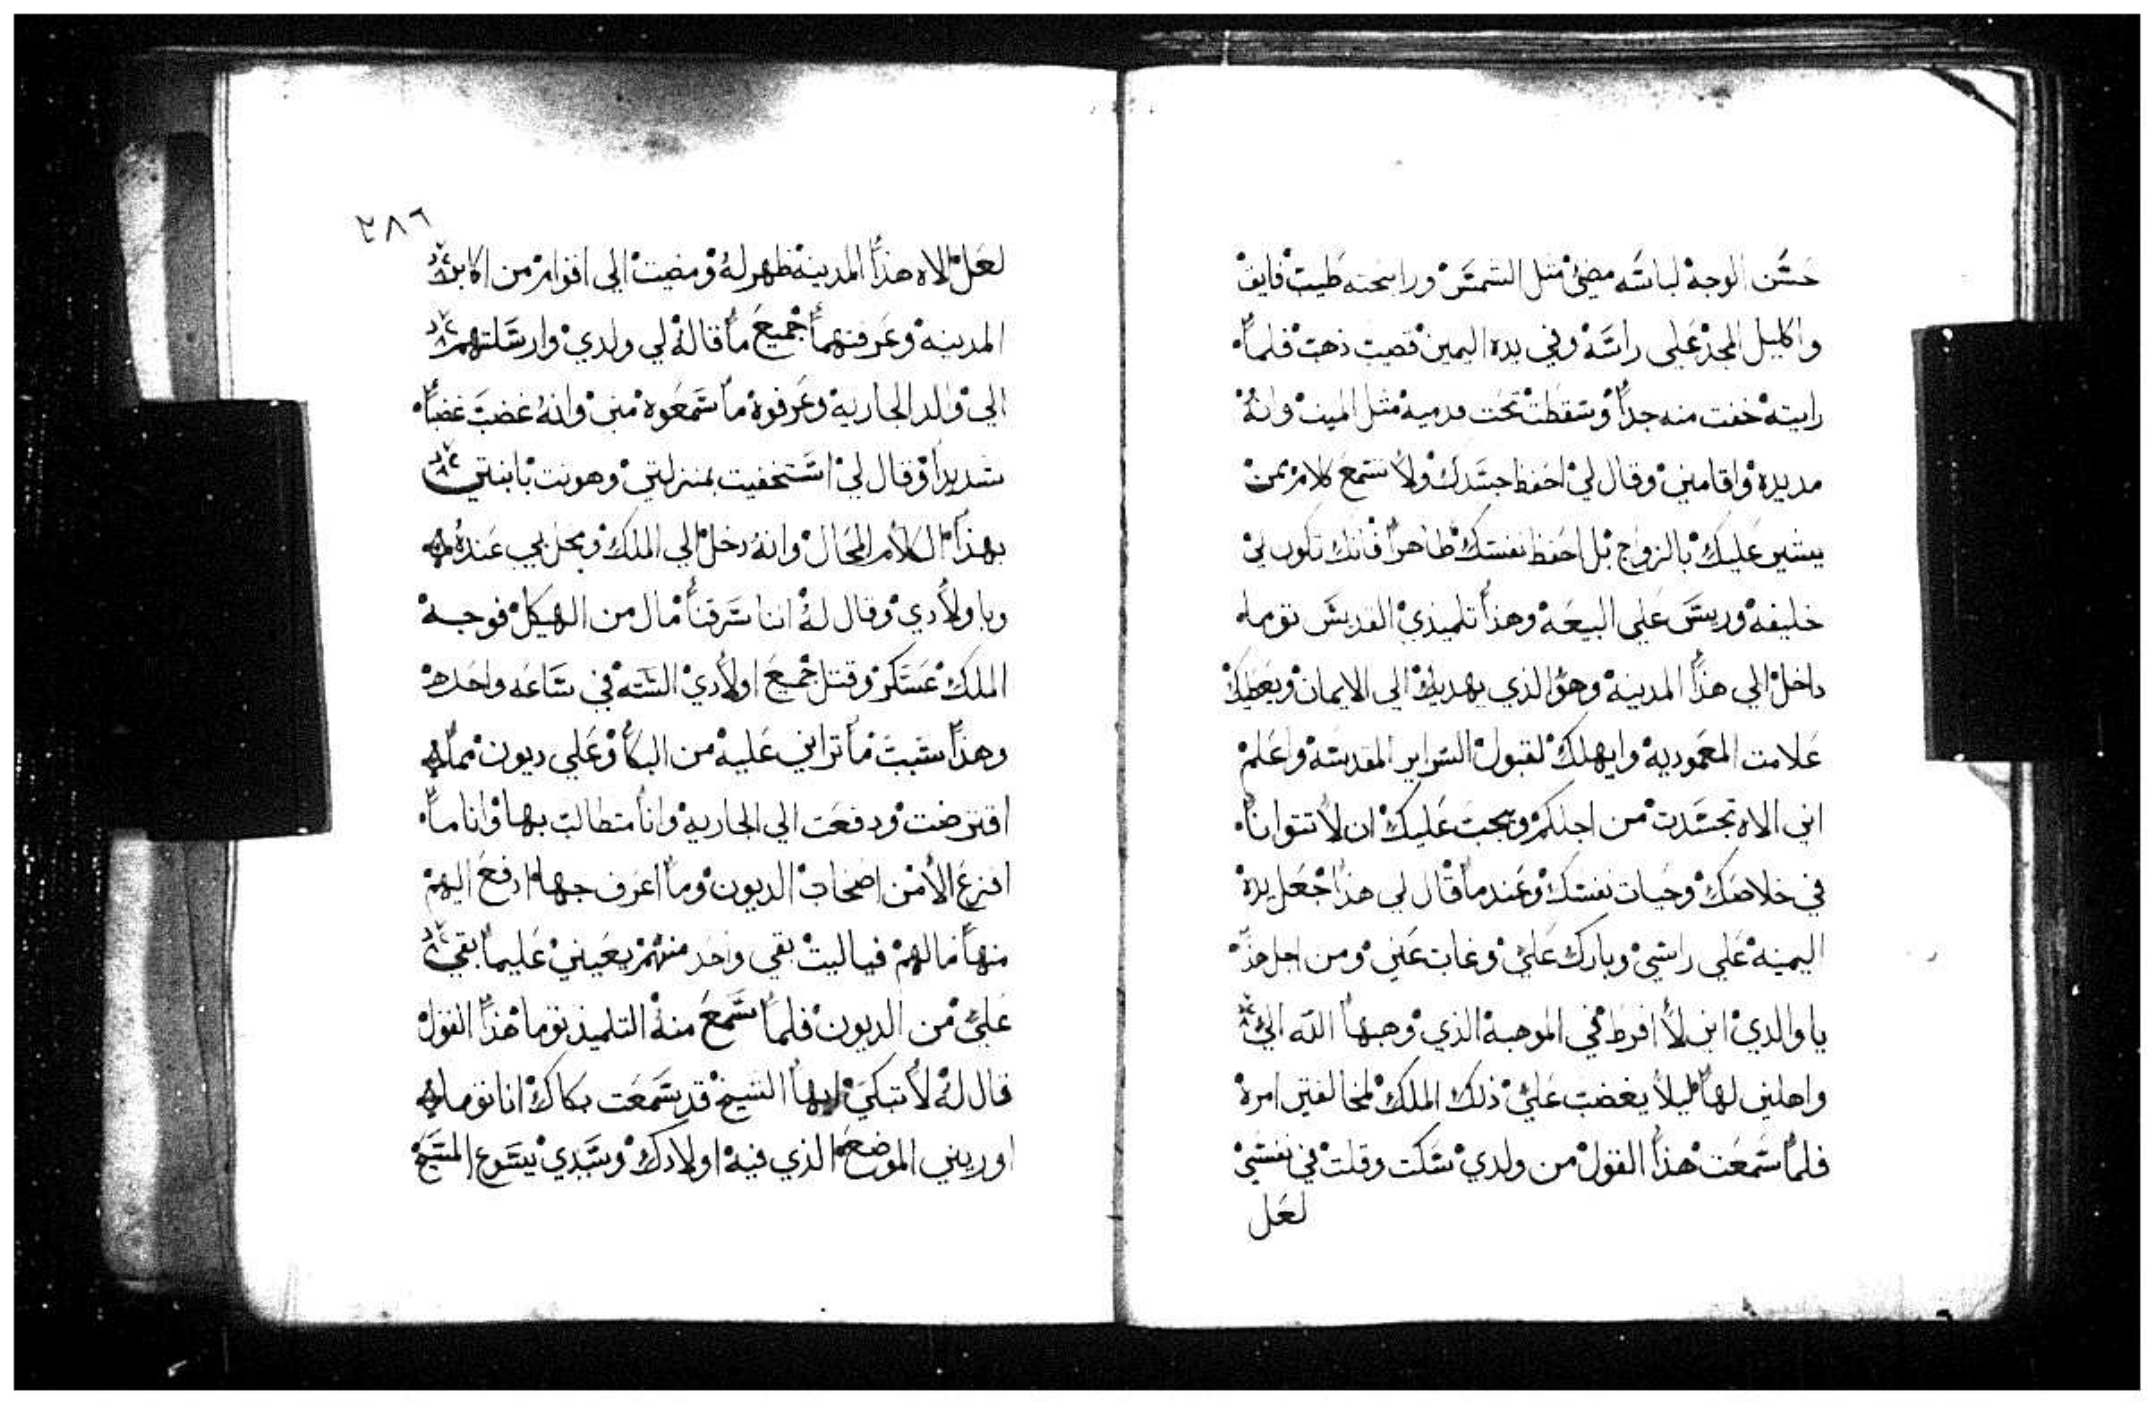 حسن الوجه لباسه مضي مثل الشمس ورايحته طيب فايق
واكليل المجد على راسه وفي يده اليمين قضيب ذهب فلما
رايته خفت منه جداً وسقطت تحت قدميه مثل الميت وانه
مد يده واقامني وقال لي احفظ جسدك ولا تسمع كلام من
يشير عليك بالزواج بل احفظ نفسك طاهراً فانك تكون لي
خليفه وريس على البيعه وهذا تلميذي القديس توما
داخل الي هذا المدينه وهو الذي يهديك الي الايمان ويعطيك
علامت المعموديه وايهلك لقبول السراير المقدسه واعلم
اني الاه تجسدت من اجلكم ويجب عليك ان لا تتوانا
في خلاصك وحيات نفسك وعندما قال لي هذا جعل يده
اليمينه علي راسي وبارك علي وغاب عني ومن اجل هذا
يا والدي انى لا افرط في الموهبه الذي وهبها الله الي
واهلني لها ليلا يغضب علي ذلك الملك لمخالفتي امره
فلما سمعت هذا القول من ولدي سكت وقلت في نفسي
لعل
٢٨٦
لعل الاه هذا المدينه ظهر له ومضيت الي اقوام من اكابر
المدينه وعرفتهما جميع ما قاله لي ولدي وارسلتهم
الي والد الجاريه وعرفوه ما سمعوه مني وانه غضب غضباً
شديداً وقال لي استخفيت بمنزلتي وهونت بابنتي
بهذا الكلام المحال وانه دخل الي الملك ومحل بي عنده
وباولادي وقال له اننا سرقنا مال من الهيكل فوجه
الملك عسكر وقتل جميع اولادي السته في ساعه واحده
وهذا سبب ما تراني عليه من البكا وعلي ديون مما
اقترضت ودفعت الي الجاريه وانا متطالب بها وانا ما
افزع الا من اصحاب الديون وما اعرف جها ادفع اليهم
منها مالهم فياليت بقي واحد منهم يعيني علي ما بقي
علي من الديون فلما سمع منه التلميذ توما هذا القول
قال له لا تبكي ايها الشيخ قد سمعت بكاك انا توما
اوريني الموضع الذي فيه اولادك وسيدي يسوع المسيح